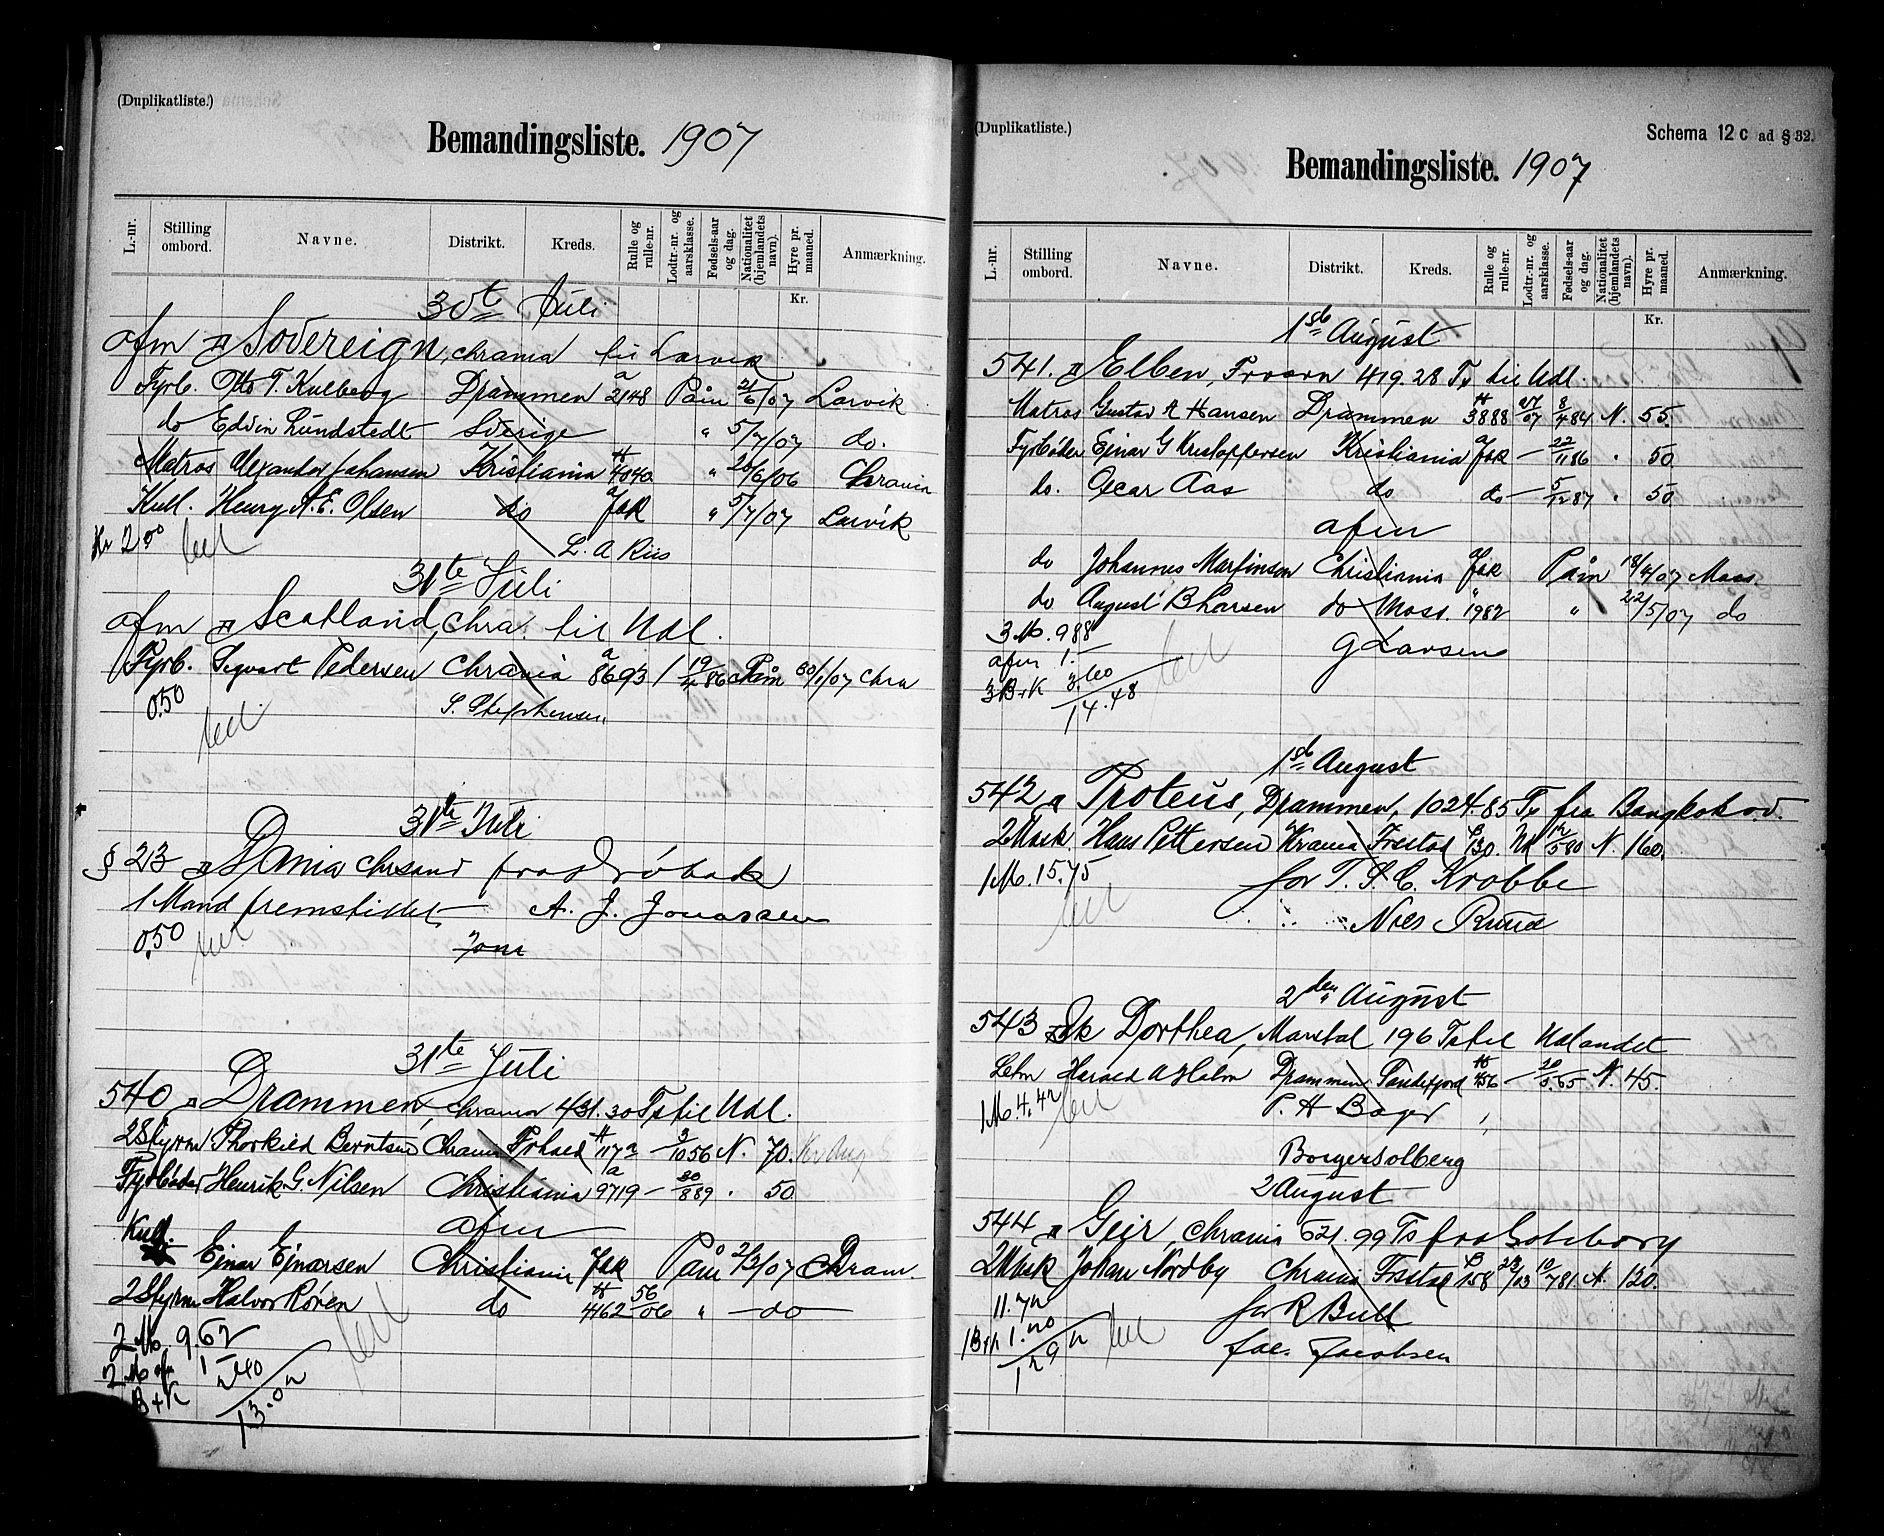 (Duplikatliste.)
Bemandingsliste. 1907
L.-nr. Stilling ombord. Navne. Distrikt. Kreds. Rulle og rulle-nr. Lodtr.-nr. og aarsklasse. Fødsels-aar og dag. Nationalitet (hjemlandets navn). Hyre pr. maaned. Anmærkning.
Kr.
30te Juli
afm Sovereign, Chrania til Larvik
Fyrb. Otto T. Kulberg Drammen a 2148 Påm 21/6/07 Larvik
do Edvin Lundstedt Sverige " 5/7/07 do.
Matros Alexander Johansen Kristiania H 4040 " 20/6/06 Chrania
Kull. Henry A. E. Olsen do a JaR " 5/7/07 Larvik
Kr 2.00 L. A Riis
31te Juli
afm Scotland, Chra. til Udl.
Fyrb. Sigvart Pedersen Chrania a 8693 1 19/4 86 Påm 30/1/07 Chra
0.50 S. Stephensen
31te Juli
§ 23 Dania Chrsand fra Drøbak
1 Mand fremstillet A. J. Jonassen
0.50
31te Juli
540 Drammen, Chrania 431.30 Ts til Udl.
2 Styrm Thorkild Berntsen Chrania H 117a — 3/10 56 N. 70.
Fyrbøder Henrik G. Nilsen Christiania a 9719 — 30/8 89 . 50
afm
Kull. Ejnar Ejnarsen Christiania JaR Påm 2/2/07 Dram.
2 Styrm Halvor Røren do H 4162 56/06 " — do —
2 M. 9.62
2 M afm 1 —
B+K 2.40
13.02
(Duplikatliste.)
Schema 12 c ad § 32.
Bemandingsliste. 1907
L.-nr. Stilling ombord. Navne. Distrikt. Kreds. Rulle og rulle-nr. Lodtr.-nr. og aarsklasse. Fødsels-aar og dag. Nationalitet (hjemlandets navn). Hyre pr. maaned. Anmærkning.
Kr.
1st August
541. Elben, 419.28 Ts til Udl.
Matros Gustav A Hansen Drammen H 3888 27/07 8/4 84 N. 55.
Fyrbøder Ejnar G Kristoffersen Kristiania a JaR — 22/11 86 . 50
do. Oscar Aas do do — 5/12 87 . 50
afm
do Johannes Martinson Christiania a JaR Påm 18/4/07 Moss.
do August B Larsen do Moss. 1982 " 22/5/07 do
3 M. 9.88
afm 1.—
3 B+K 3.60
14.48
G Larsen
1st August
542 Proteus, Drammen, 1024.85 Ts fra Bangkok o.v.
2 Mask Hans Pettersen Krania Frstad L 130. 12/5 80 N. 160.
1 M. 15.75 for T. S. C. Krabbe
Niels Ruud
2den August
543 Sk Dorthea, Marstal 196 Ts til Udlandet
Letm Harald A Holm Drammen Sandefjord H 456 — N. 45.
1 M 4.42 P. H Bager
Borger Solberg
2 August
544 Geir, Chrania 621.99 Ts fra Goteborg
2 Mask Johan Nordby Chrania Frstad L 158 23/03 10/7 81. N. 130.
11.72 for R Bull
B+K 1.20 Jac. Jacobsen
12.92